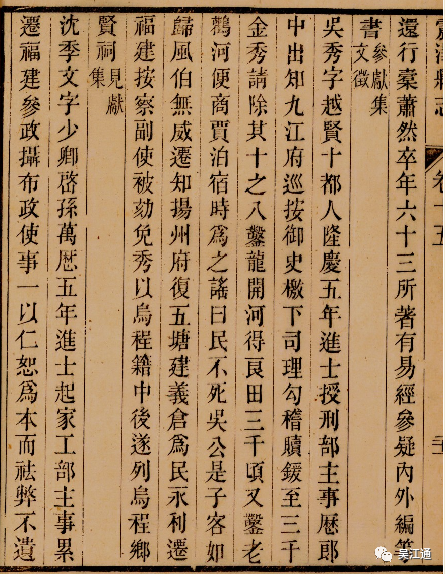 卷十五
還行橐蕭然卒年六十三所著有易經參疑內外編等
書參獻集
文徵
吳秀字越賢十都人隆慶五年進士授刑部主事厯郎
中出知九江府巡按御史檄下司理勾稽贖鍰至三千
金秀請除其十之八鑿龍開河得良田三千頃又鑿老
鸛河便商賈泊宿時爲之謠曰民不死吳公是子客如
歸風伯無威遷知揚州府復五塘建義倉爲民永利遷
福建按察副使被劾免秀以烏程籍中後遂列烏程鄉
賢祠見獻
集
沈季文字少卿啓孫萬厯五年進士起家工部主事累
遷福建參政攝布政使事一以仁恕爲本而祛弊不遺
吴江通